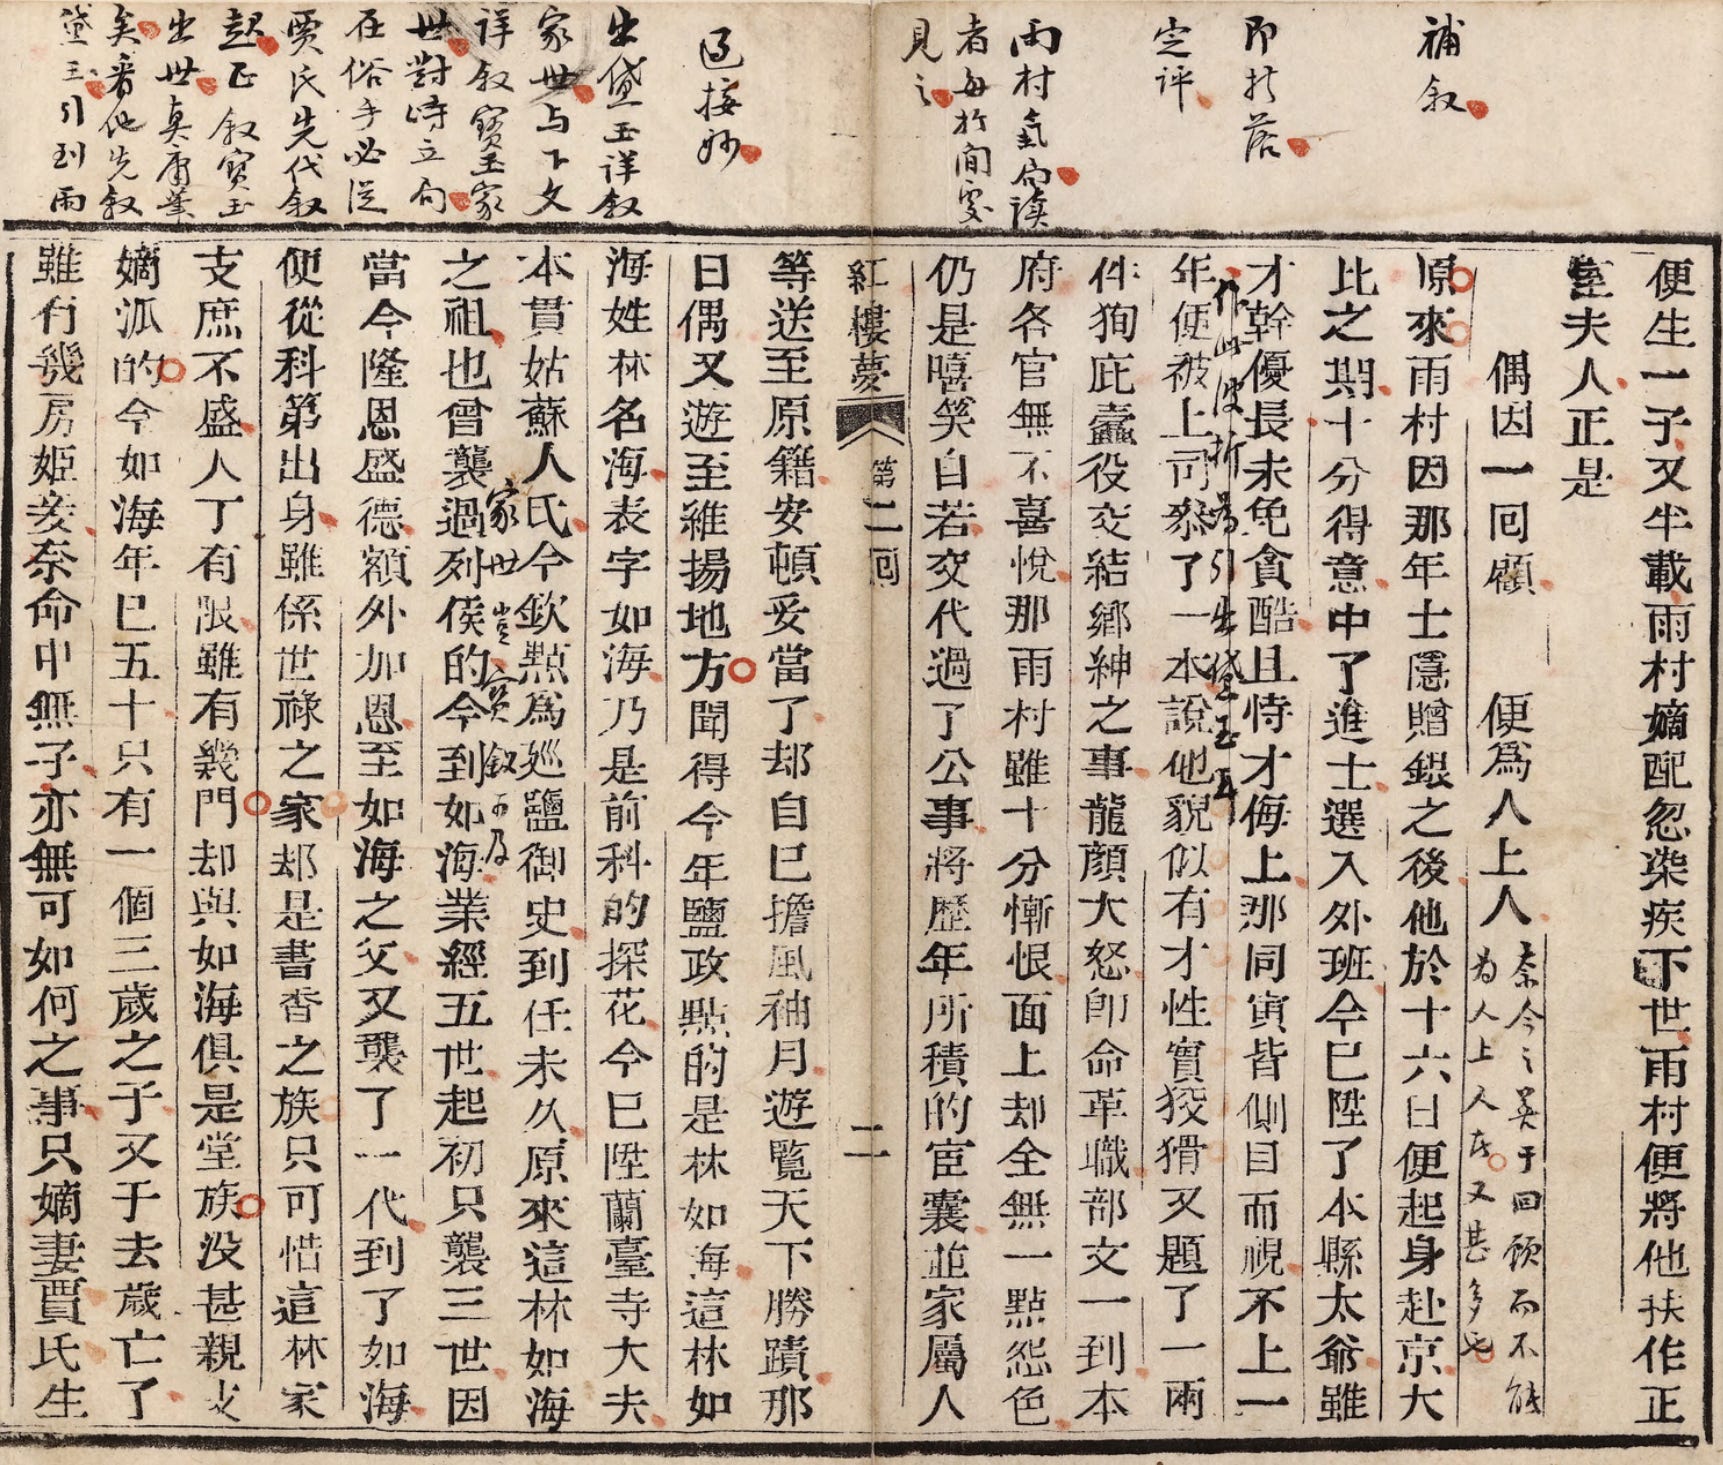 補叙
即打落
定評
雨村氣局讀
者每於閒處
見之
接妙
出黛玉詳叙
家世与下文
詳叙寳玉家
世對峙立局
在俗手必從
賈氏先代叙
起正叙寳玉
出世真庸筆
矣看他先叙
黛玉引到雨
便生一子又半載雨村嫡配忽染疾下世雨村便將他扶作正
室夫人正是
偶因一回顧 便爲人上人
奈今之美于回顧而不能
为人上人者又甚多也
原來雨村因那年士隱贈銀之後他於十六日便起身赴京大
比之期十分得意中了進士選入外班今已陞了本縣太爺雖
才幹優長未免貪酷且恃才侮上那同寅皆側目而視不上一
作此波折爲引出黛玉耳
年便被上司叅了一本說他貌似有才性實狡猾又題了一兩
件狥庇蠹役交結鄉紳之事龍顔大怒卽命革職部文一到本
府各官無不喜悅那雨村雖十分慚恨面上却全無一點怨色
仍是嘻笑自若交代過了公事將歷年所積的宦囊並家屬人
紅樓夢 第二囘 二
等送至原籍安頓妥當了却自巳擔風袖月遊覽天下勝蹟那
日偶又遊至維揚地方聞得今年鹽政點的是林如海這林如
海姓林名海表字如海乃是前科的探花今巳陞蘭臺寺大夫
本貫姑蘇人氏今欽點爲廵鹽御史到任未久原來這林如海
家世豈宜叙不及
之祖也曾襲過列侯的今到如海業經五世起初只襲三世因
當今隆恩盛德額外加恩至如海之父又襲了一代到了如海
便從科第出身雖係世祿之家却是書香之族只可惜這林家
支庶不盛人丁有限雖有幾門却與如海俱是堂族没甚親支
嫡派的今如海年巳五十只有一個三歲之子又于去歲亡了
雖有幾房姬妾奈命中無子亦無可如何之事只嫡妻賈氏生